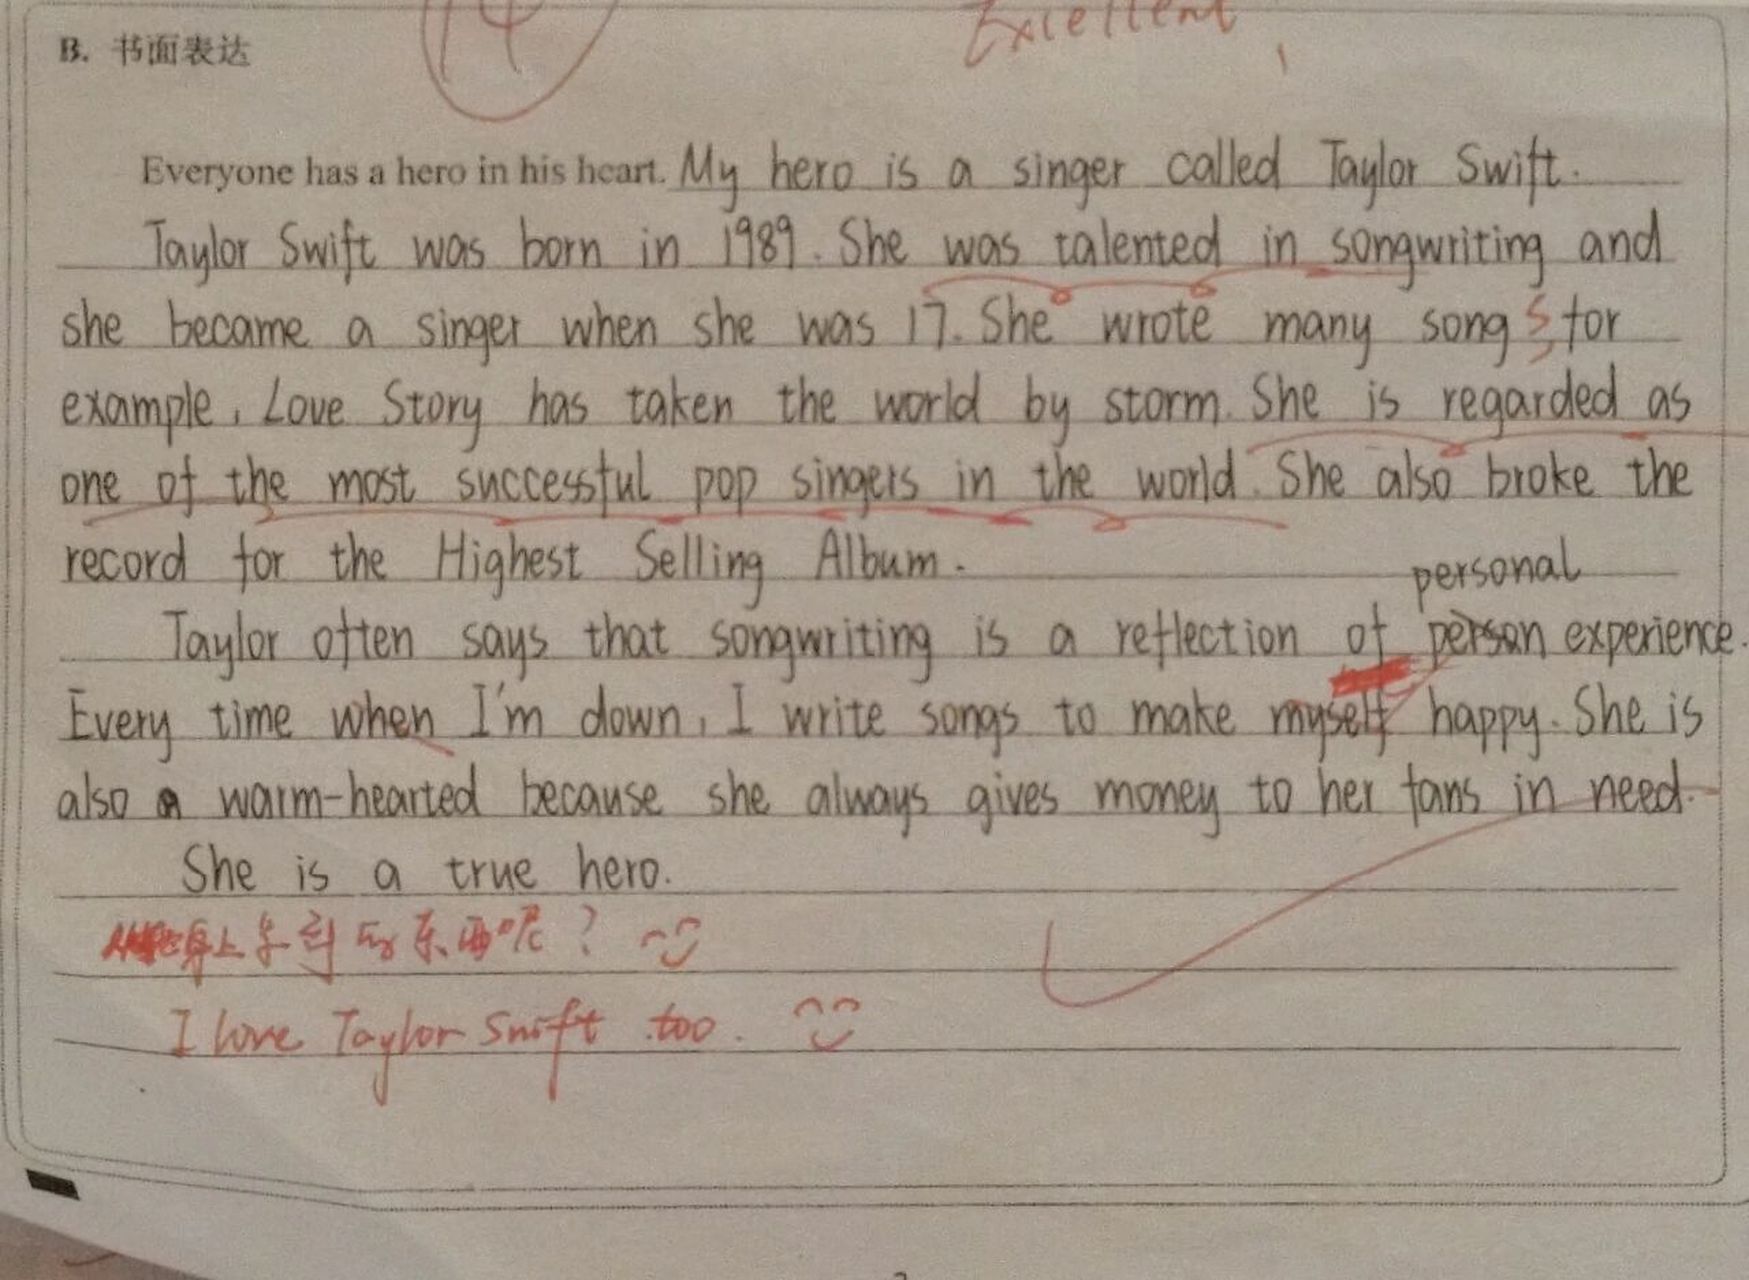 14 Excellent
B. 书面表达
Everyone has a hero in his heart. My hero is a singer called Taylor Swift.
Taylor Swift was born in 1989. She was talented in songwriting and
she became a singer when she was 17. She wrote many song s, for
example, Love Story has taken the world by storm. She is regarded as
one of the most successful pop singers in the world. She also broke the
record for the Highest Selling Album.
personal
Taylor often says that songwriting is a reflection of person experience.
Every time when I'm down, I write songs to make myself happy. She is
also a warm-hearted because she always gives money to her fans in need.
She is a true hero.
身上学到的东西呢?
I love Taylor Swift too.